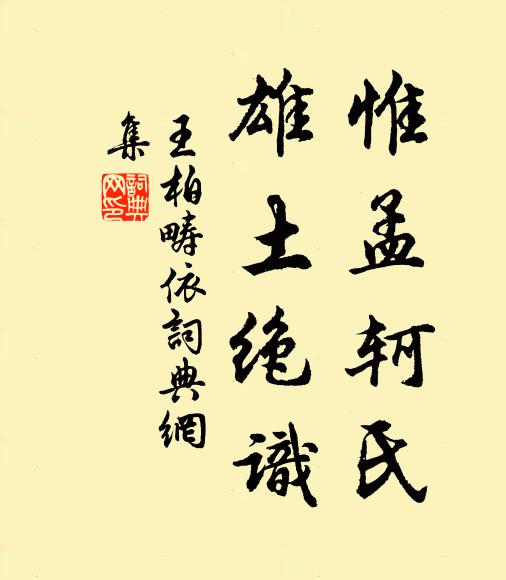 惟孟轲氏
雄土绝識
王柏畴依詞典網
集
詞典網印